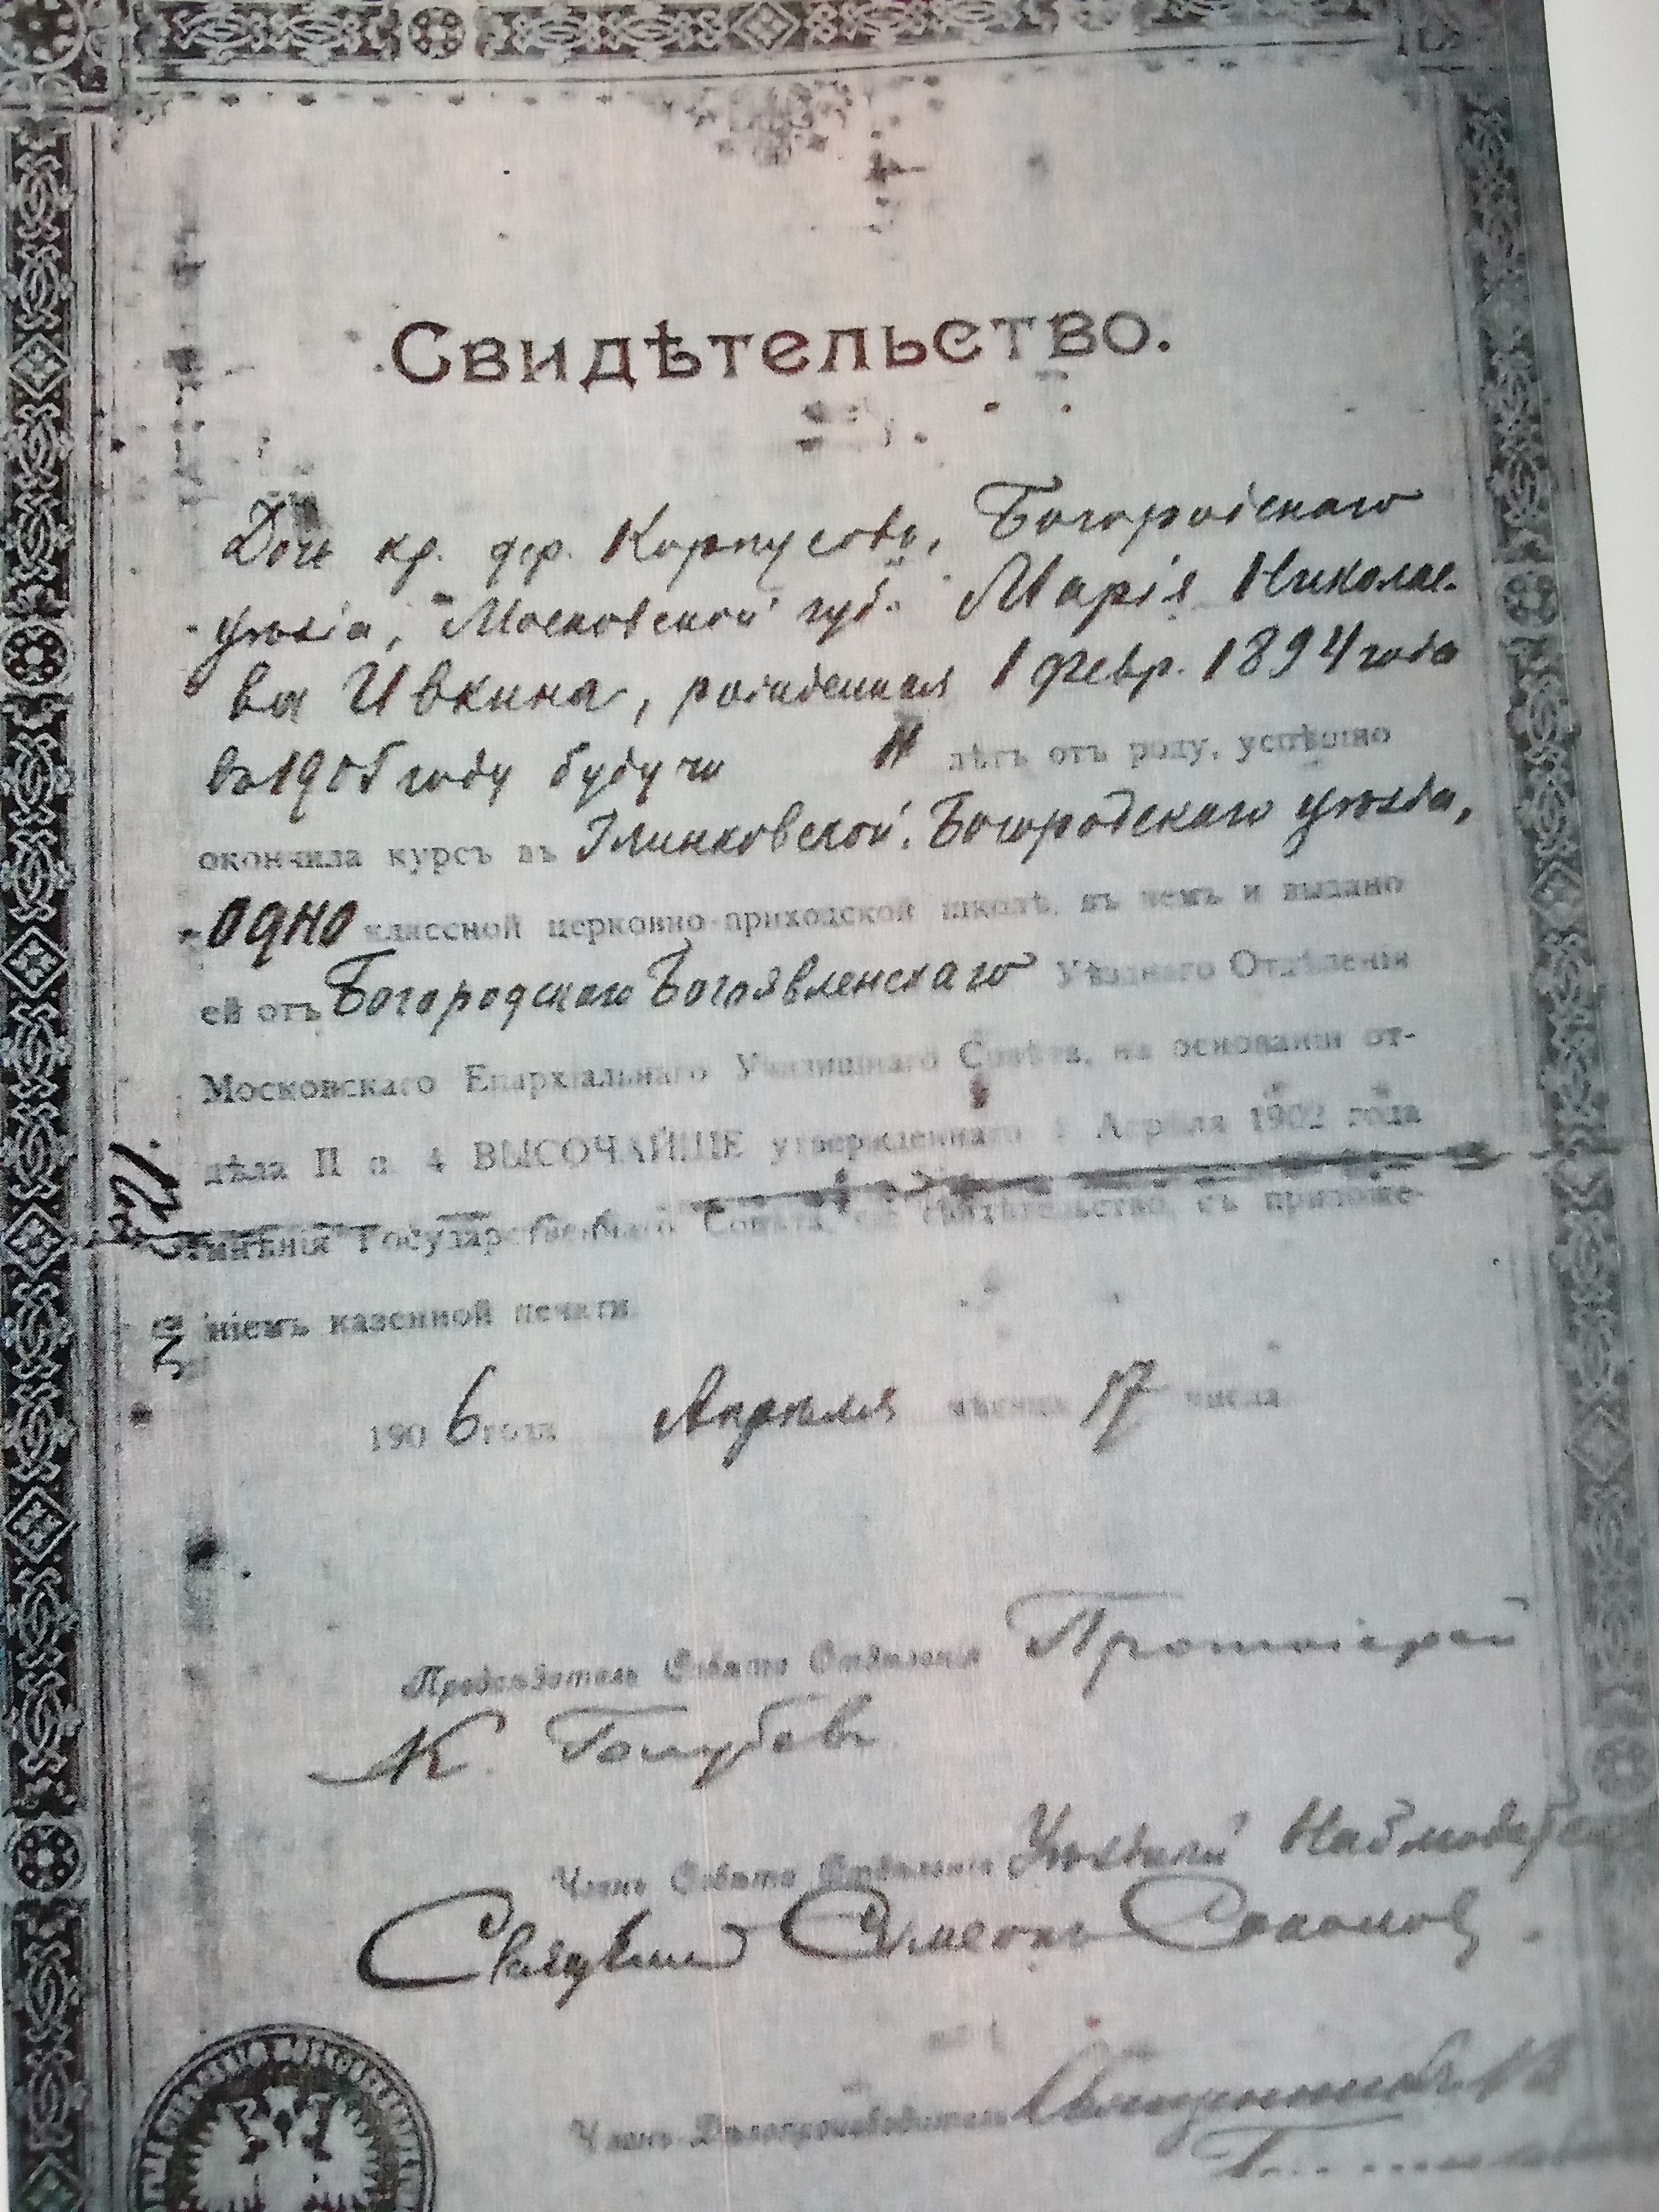 Свидѣтельство.
Дочь кр. дер. Корпусова, Богородскаго
уѣзда, Московской губ. Марія Николае-
ва Ивкина, рожденная 1 февр. 1894 года
въ 1905 году будучи 11 лѣтъ отъ роду, успѣшно
окончила курсъ въ Глинковской, Богородскаго уѣзда,
одно классной церковно-приходской школѣ, въ чемъ и выдано
ей отъ Богородскаго Богоявленскаго Уѣзднаго Отдѣленія
Московскаго Епархіальнаго Училищнаго Совѣта, на основаніи от-
дѣла II п. 4 ВЫСОЧАЙШЕ утвержденнаго 1 Апрѣля 1902 года
мнѣнія Государственнаго Совѣта, сіе свидѣтельство, съ приложе-
ніемъ казенной печати.
№
1906 года Апрѣля мѣсяца 17 числа
Предсѣдатель Совѣта Отдѣленія Протоіерей
К. Голубевъ
Членъ Совѣта Отдѣленія Уѣздный Наблюдатель
Священникъ Симеонъ Соколовъ.
Членъ-Дѣлопроизводитель